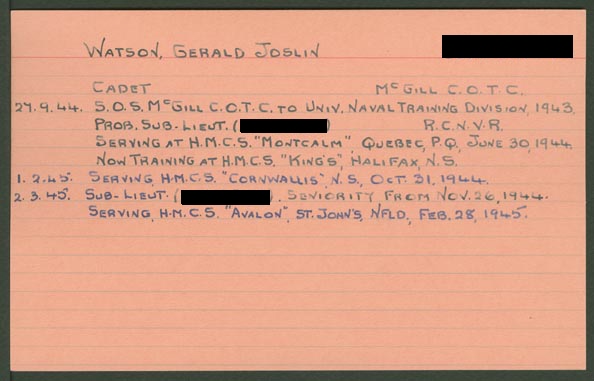 WATSON, GERALD JOSLIN
CADET McGILL C.O.T.C.
27.9.44. S.O.S. McGILL C.O.T.C. TO UNIV. NAVAL TRAINING DIVISION, 1943.
PROB. SUB-LIEUT. ( ) R.C.N.V.R.
SERVING AT H.M.C.S. "MONTCALM", QUEBEC, P.Q., JUNE 30, 1944.
NOW TRAINING AT H.M.C.S. "KING'S", HALIFAX, N.S.
1.2.45. SERVING, H.M.C.S. "CORNWALLIS", N.S., OCT. 31, 1944.
2.3.45. SUB-LIEUT. ( ). SEVIORITY FROM NOV. 26, 1944.
SERVING, H.M.C.S. "AVALON", ST. JOHN'S, NFLD, FEB. 28, 1945.